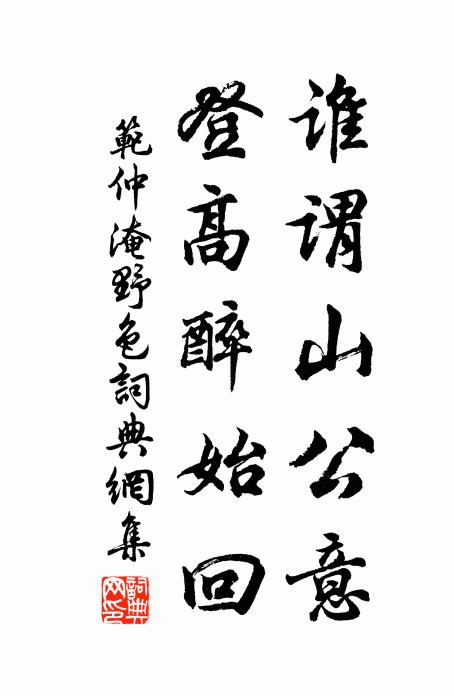 誰謂山公意
登高醉始回
範仲淹野色詞典網集
詞典
网印